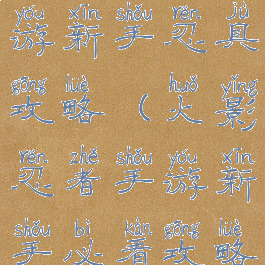 yóu xīn shǒu rěn jù
游 新 手 忍 具
gōng lüè huǒ yǐng
攻 略 （ 火 影
rěn zhě shǒu yóu xīn
忍 者 手 游 新
shǒu bì kàn gōng lüè
手 必 看 攻 略